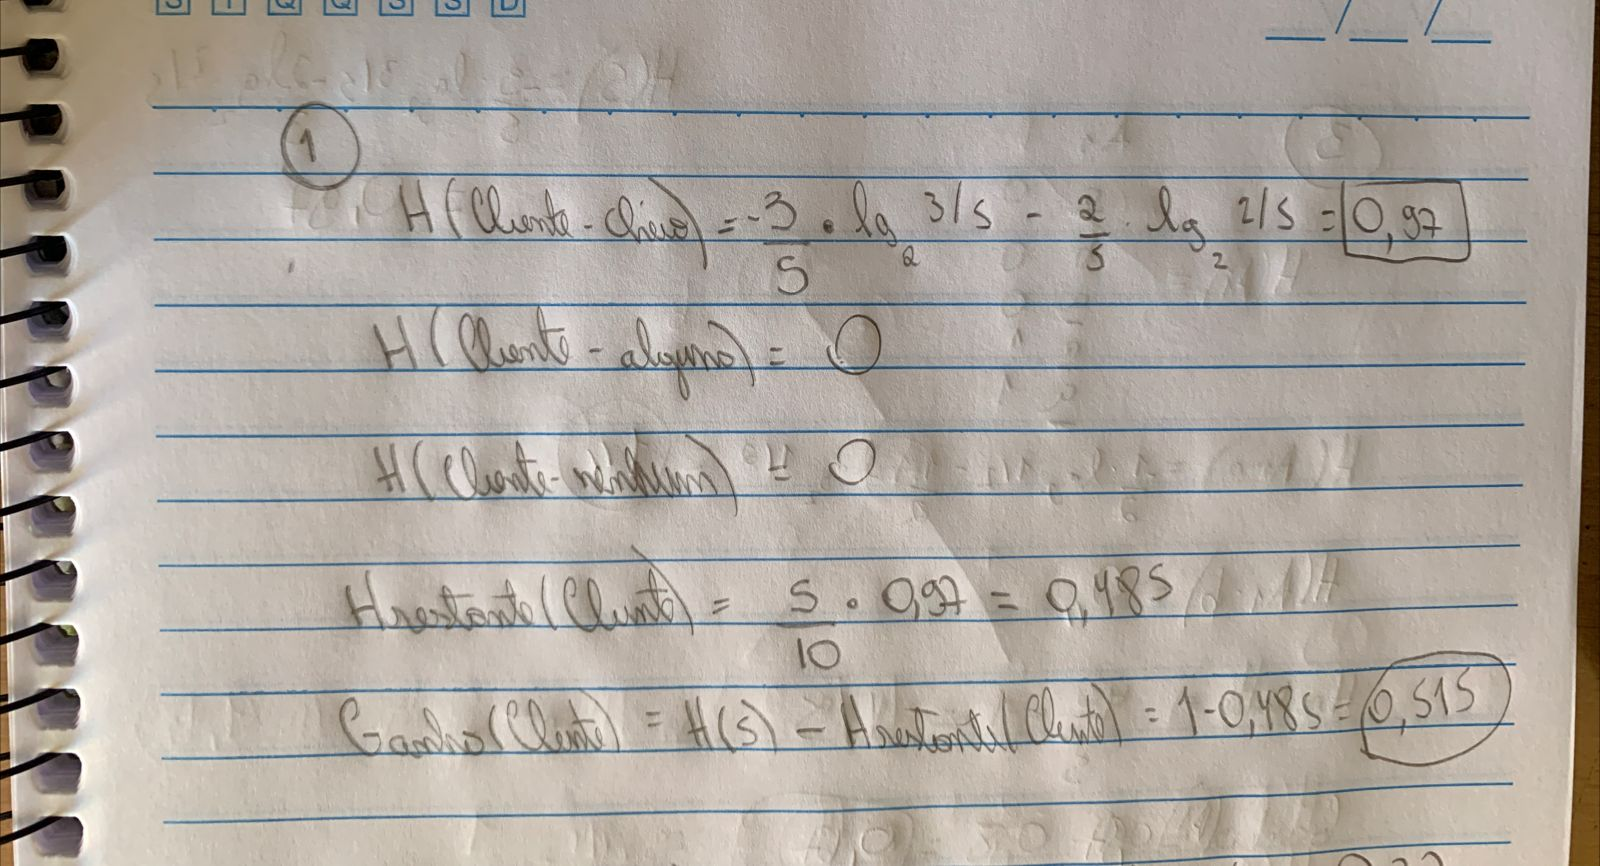 S T Q Q S S D
1
H(Cliente-cheio) = -3/5 . lg₂ 3/5 - 2/5 . lg₂ 2/5 = 0,97
H(Cliente-algums) = 0
H(Cliente-nenhum) = 0
Hrestante(Cliente) = 5/10 . 0,97 = 0,485
Ganho(Cliente) = H(S) - Hrestante(Cliente) = 1-0,485 = 0,515